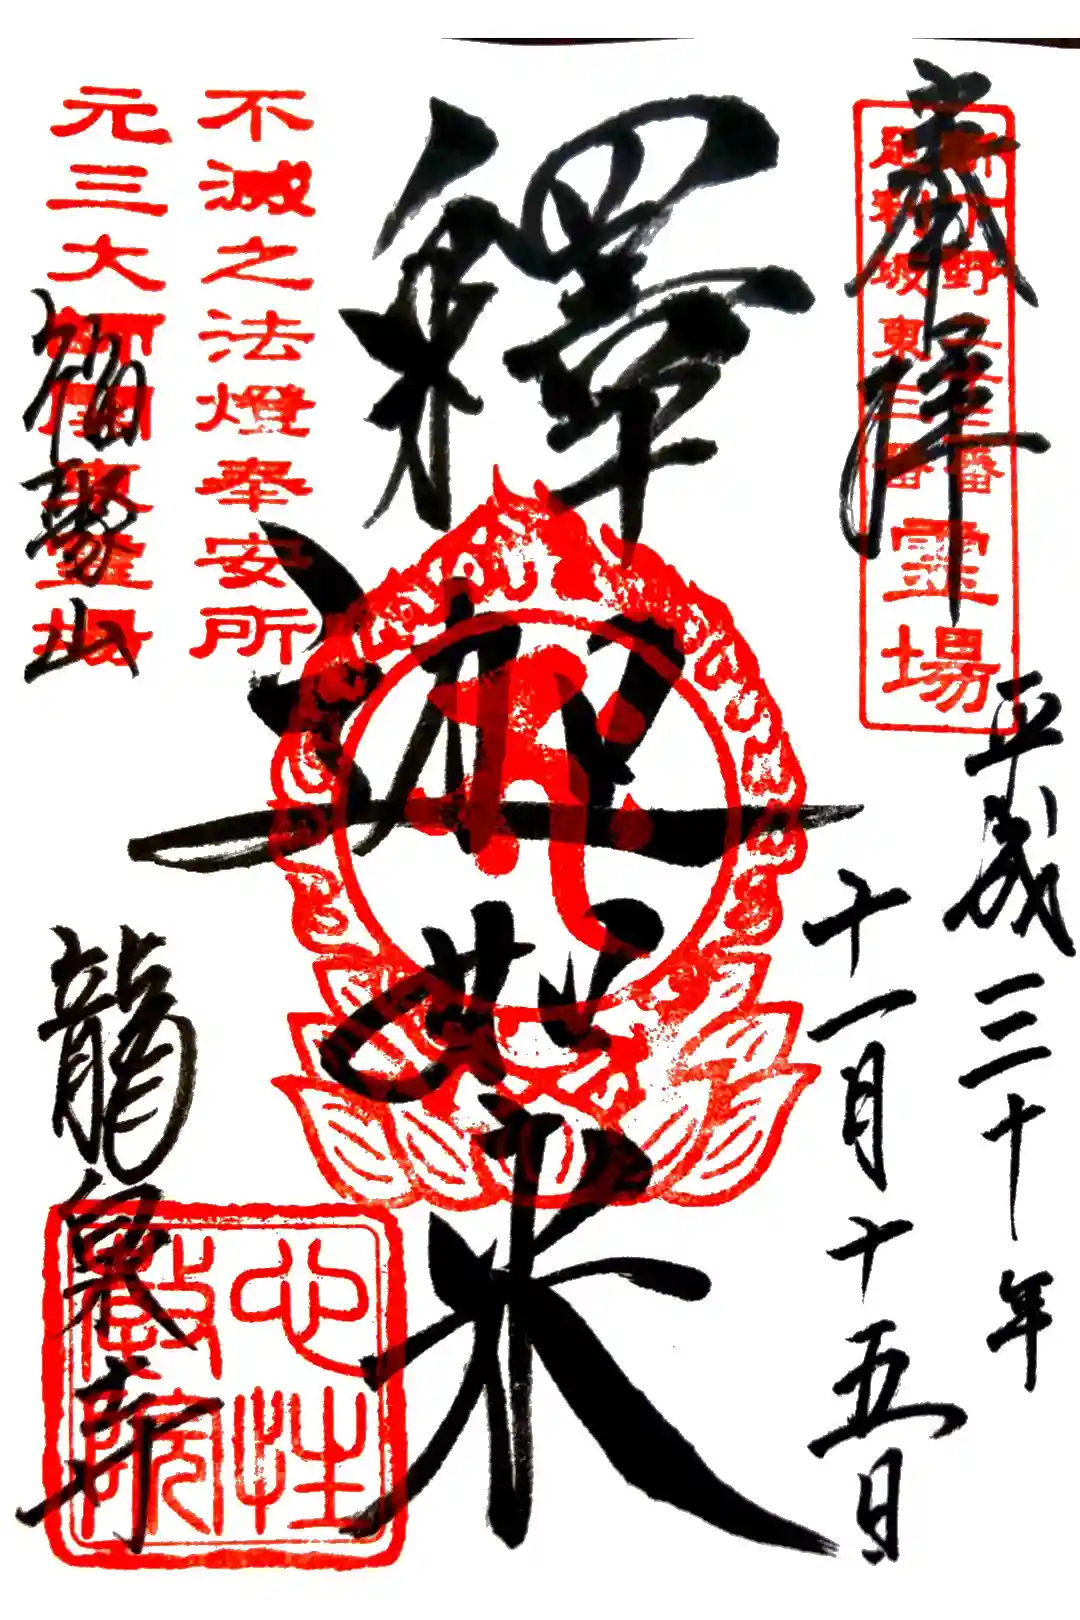 奉拝
足利坂東
霊場
平成三十年
十一月十五日
釋迦如来
不滅之法燈奉安所
元三大師
福聚山
龍泉寺
心性
教院